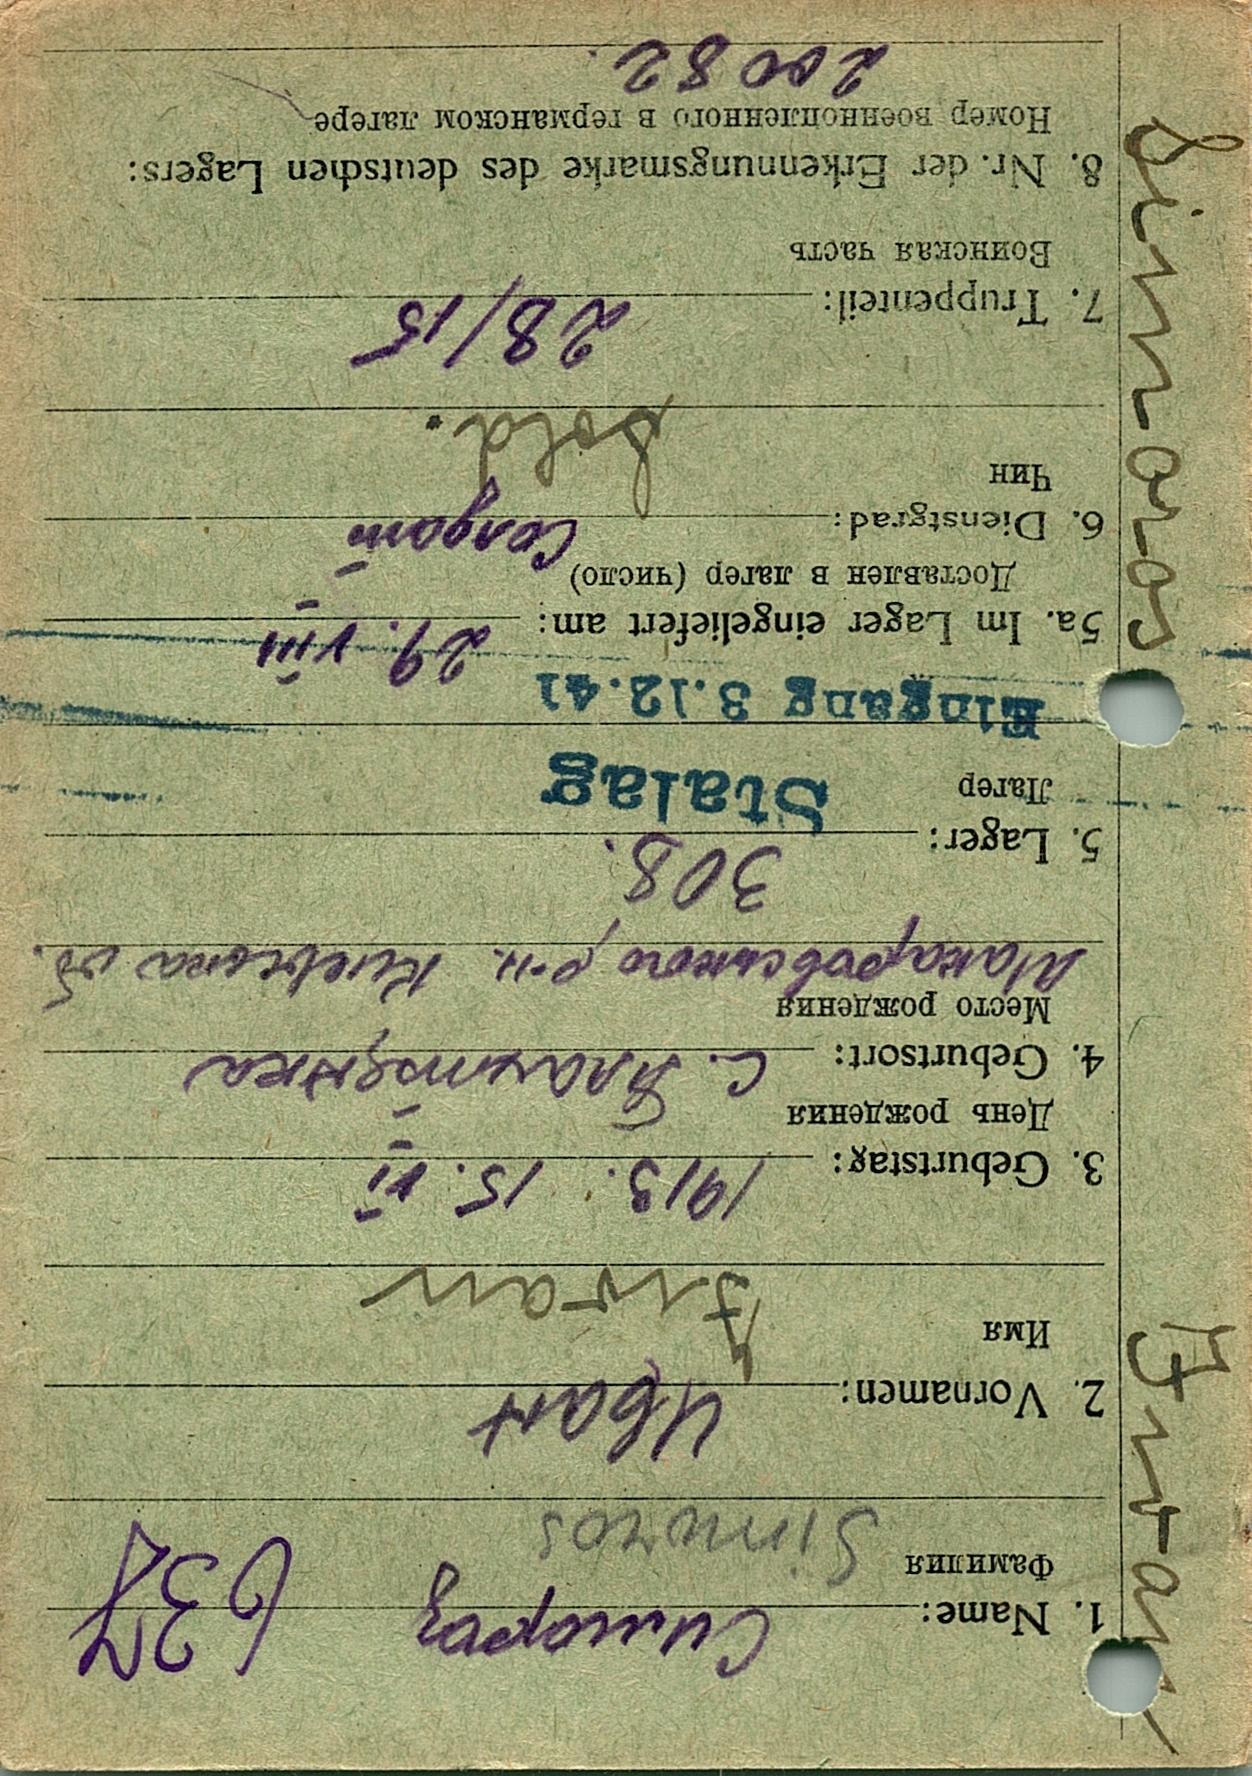 637
1. Name: Симороз
Фамилия
Simoros
2. Vornamen: Иван
Имя
Iwan
3. Geburtstag: 1913. 15. VI
День рождения
4. Geburtsort: с.
Место рождения
Макаровського р-н. Київська об.
308.
5. Lager:
Лагер
Stalag
Eingang 3.12.41
5a. Im Lager eingeliefert am: 29. VIII
Доставлен в лагер (число)
6. Dienstgrad: Солдат
Чин
Sold.
7. Truppenteil: 28/15
Воинская часть
8. Nr. der Erkennungsmarke des deutschen Lagers:
Номер военнопленного в германском лагере
20082.
Simoros Iwan